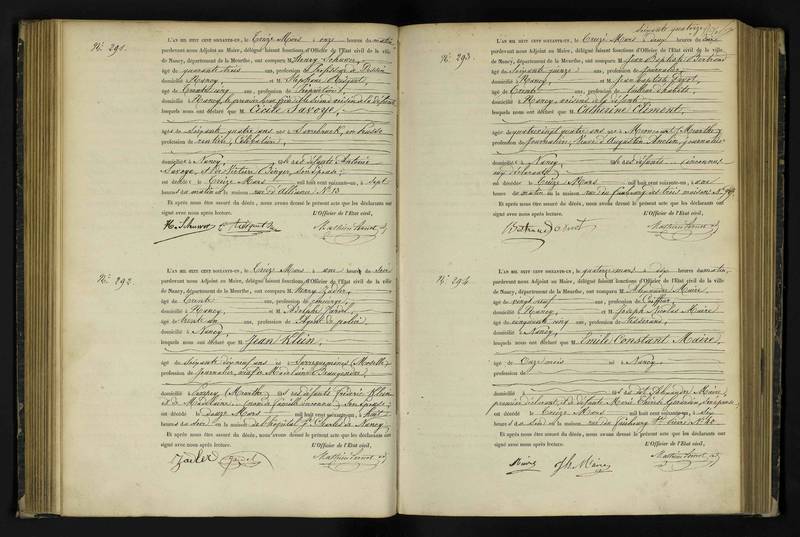 N.º 291.
L'AN MIL HUIT CENT SOIXANTE-UN, le Treize Mars à onze heures du matin,
pardevant nous Adjoint au Maire, délégué faisant fonctions d'Officier de l'Etat civil de la ville
de Nancy, département de la Meurthe, ont comparu M. Henry Schuver,
âgé de quarante trois ans, profession de Professeur de Dessin
domicilié à Nancy, et M. Stéphane
âgé de Trente cinq ans, profession de Propriétaire,
domicilié à Nancy, le premier
lesquels nous ont déclaré que M. Cécile Savoye,
âgée de Soixante quatre ans née à Sarrebruck, en Prusse
profession de rentière, Célibataire,
domiciliée à Nancy, fille des défunts Antoine
Savoye, et de Victoire Binger, son épouse;
est décédée le Treize Mars mil huit cent soixante-un, à Sept
heures du matin en la maison rue d'Alliance N.º 13
Et après nous être assuré du décès, nous avons dressé le présent acte que les déclarants ont
signé avec nous après lecture. L'Officier de l'Etat civil,
N.º 292.
L'AN MIL HUIT CENT SOIXANTE-UN, le Treize Mars à une heure du soir
pardevant nous Adjoint au Maire, délégué faisant fonctions d'Officier de l'Etat civil de la ville
de Nancy, département de la Meurthe, ont comparu M. Henry Zadler,
âgé de Trente ans, profession de concierge,
domicilié à Nancy, et M. Adolphe
âgé de trente un ans, profession de Agent de police
domicilié à Nancy,
lesquels nous ont déclaré que M. Jean Klein,
âgé de Soixante dix neuf ans né à Sarreguemines (Moselle)
profession de journalier, veuf de Madeleine
domicilié à (Meurthe) fils des défunts Frédéric Klein
et de Madeleine, son épouse;
est décédé le douze Mars mil huit cent soixante-un, à Huit
heures du soir en la maison de l'hôpital St Charles à Nancy.
Et après nous être assuré du décès, nous avons dressé le présent acte que les déclarants ont
signé avec nous après lecture. L'Officier de l'Etat civil,
Zadler
Soixante quatorze
N.º 293.
L'AN MIL HUIT CENT SOIXANTE-UN, le Treize Mars à deux heures du soir
pardevant nous Adjoint au Maire, délégué faisant fonctions d'Officier de l'Etat civil de la ville
de Nancy, département de la Meurthe, ont comparu M. Jean Baptiste Bertrand
âgé de Soixante quinze ans, profession de journalier,
domicilié à Nancy, et M. Jean Baptiste
âgé de Trente ans, profession de tailleur d'habits,
domicilié à Nancy, voisins de la défunte
lesquels nous ont déclaré que M. Catherine Clément,
âgée de quatre vingt quatre ans née à (Meurthe)
profession de journalière, Veuve d'Augustin Amelin, journalier
domiciliée à Nancy, fille des défunts inconnus
est décédée le Treize Mars mil huit cent soixante-un, à une
heure du matin en la maison rue du faubourg des trois maisons N.º
Et après nous être assuré du décès, nous avons dressé le présent acte que les déclarants ont
signé avec nous après lecture. L'Officier de l'Etat civil,
Bertrand
N.º 294.
L'AN MIL HUIT CENT SOIXANTE-UN, le quatorze mars à dix heures du matin,
pardevant nous Adjoint au Maire, délégué faisant fonctions d'Officier de l'Etat civil de la ville
de Nancy, département de la Meurthe, ont comparu M. Alexandre Maire,
âgé de vingt neuf ans, profession de Coiffeur,
domicilié à Nancy, et M. Joseph Nicolas Maire
âgé de cinquante cinq ans, profession de Tisserand,
domicilié à Nancy,
lesquels nous ont déclaré que M. Emile Constant Maire,
âgé de Onze mois né à Nancy
profession de
domicilié à fils de Alexandre Maire,
premier déclarant, et de défunte Marie Thérèse son épouse
est décédé le Treize Mars mil huit cent soixante-un, à Six
heures du soir en la maison rue du faubourg St Pierre N.º 40
Et après nous être assuré du décès, nous avons dressé le présent acte que les déclarants ont
signé avec nous après lecture. L'Officier de l'Etat civil,
Maire Jh Maire